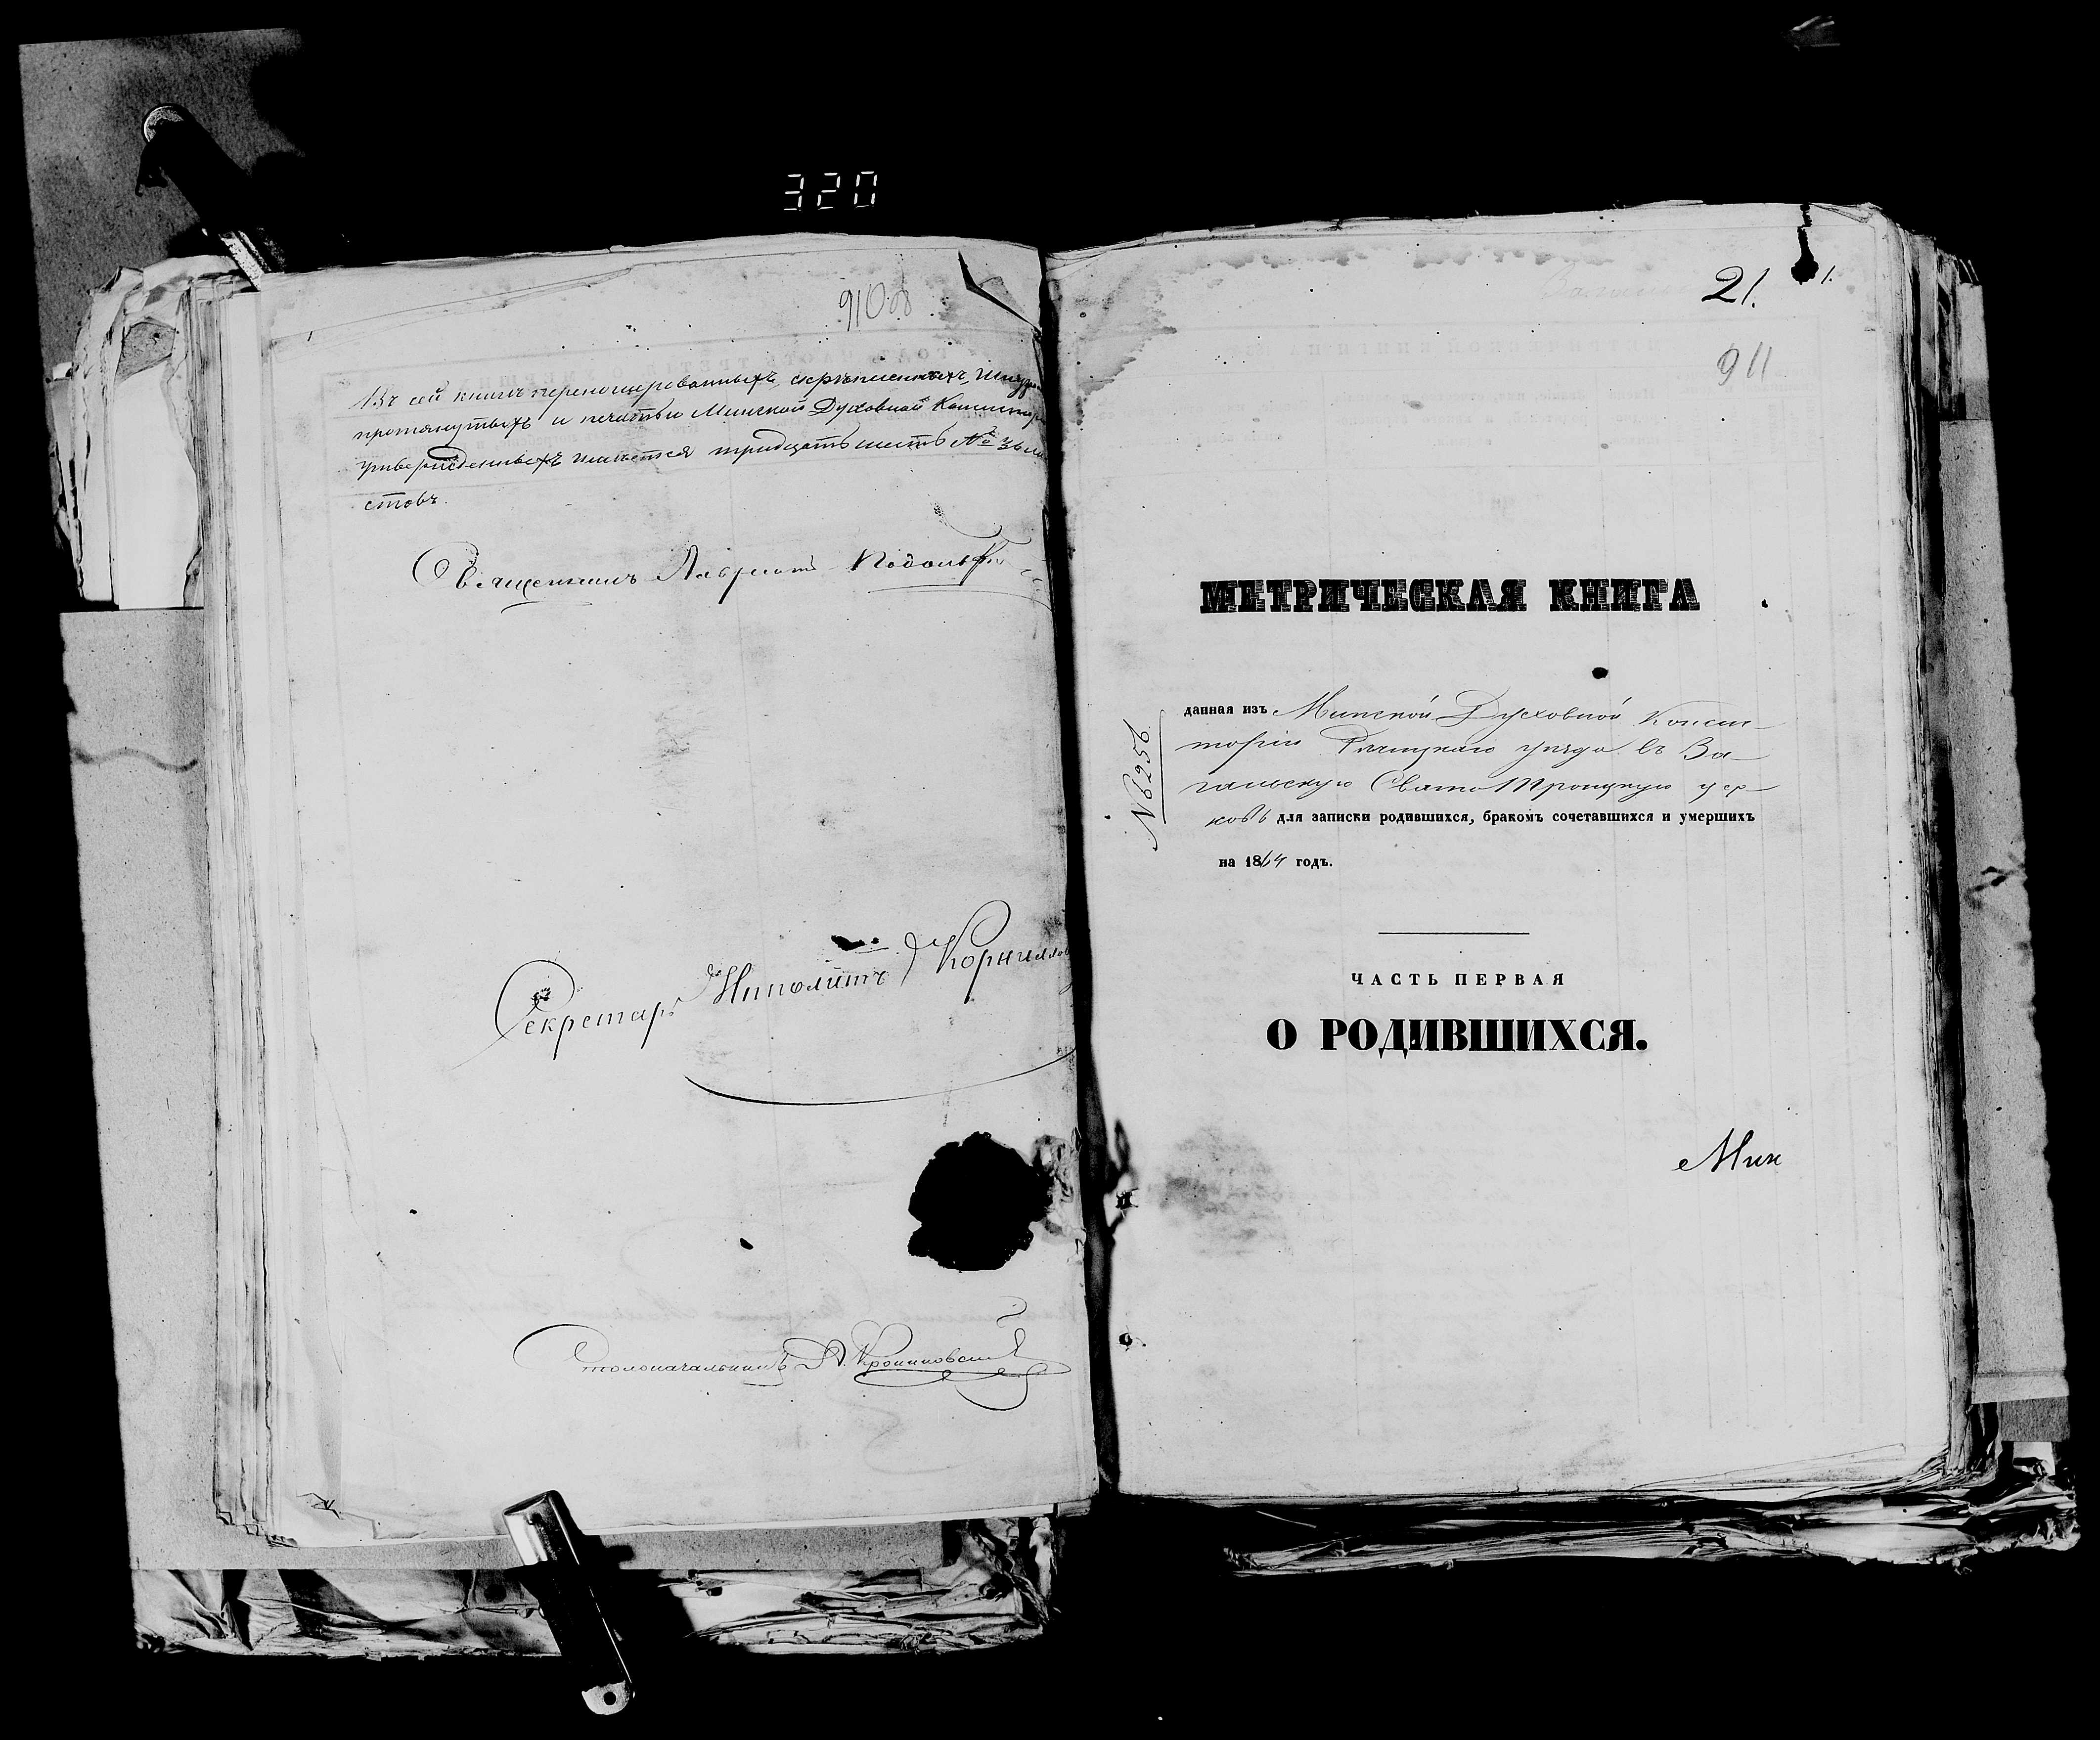 320
910 об
Въ сей книгѣ перенумерованныхъ, скрѣпленныхъ, шнуро
протянутыхъ и печатью Минской Духовной Консистор
утвержденныхъ имѣется тридцать шесть № 36 ли
стовъ.
Священникъ Лаврентій
Секретарь Ипполитъ Корнилло
Столоначальникъ
21. 1.
911
МЕТРИЧЕСКАЯ КНИГА
№ 6256
данная изъ Минской Духовной Консис-
торіи Рѣчицкаго уѣзда въ Ва-
гальскую Свято Троицкую цер-
ковь для записки родившихся, бракомъ сочетавшихся и умершихъ
на 1864 годъ.
ЧАСТЬ ПЕРВАЯ
О РОДИВШИХСЯ.
Мин